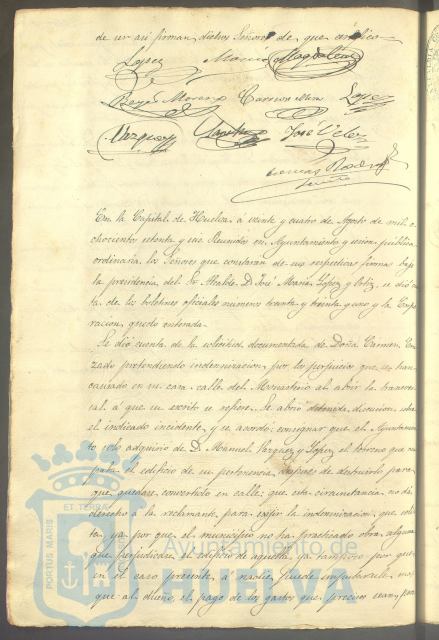 de ser asi firman dichos Señores de que certifico
Lopez Moreno Magdalena
Reyes Moreno Carrion Mora Lopez
Vazquez José Velez
En la Capital de Huelva á veinte y cuatro de Agosto de mil o
chocientos setenta y seis Reunidos en Ayuntamiento y sesion publica
ordinaria los Señores que constarán de sus respectivas firmas bajo
la presidencia del Sr Alcalde D. José Maria Lopez y Ortiz, se dió cu
ta de los boletines oficiales numeros treinta y treinta y uno y la Corpo
racion quedó enterada.
Se dió cuenta de la solicitud documentada de Doña Carmen
zado pretendiendo indemnizacion por los perjuicios que se han
causado en su casa calle del Monasterio al abrir la transver
sal á que su escrito se refiere. Se abrió detenida discusion sobre
el indicado incidente, y se acordó: consignar que el Ayuntamien
to solo adquirio de D. Manuel Vazquez y Lopez el terreno que ocu
paba el edificio de su pertenencia despues de destruirlo para
que quedase convertido en calle: que esta circunstancia no dá
derecho á la reclamante para exigir la indemnizacion que solici
ta, ya por que el municipio no ha practicado obra alguna
que perjudicase al edificio de aquella, ya tambien por que
en el caso presente á nadie puede imputarsele mas
que al dueño, el pago de los gastos que precisos sean para
PORTUS MARIS ET TERRA
Ayuntamiento de
HUELVA